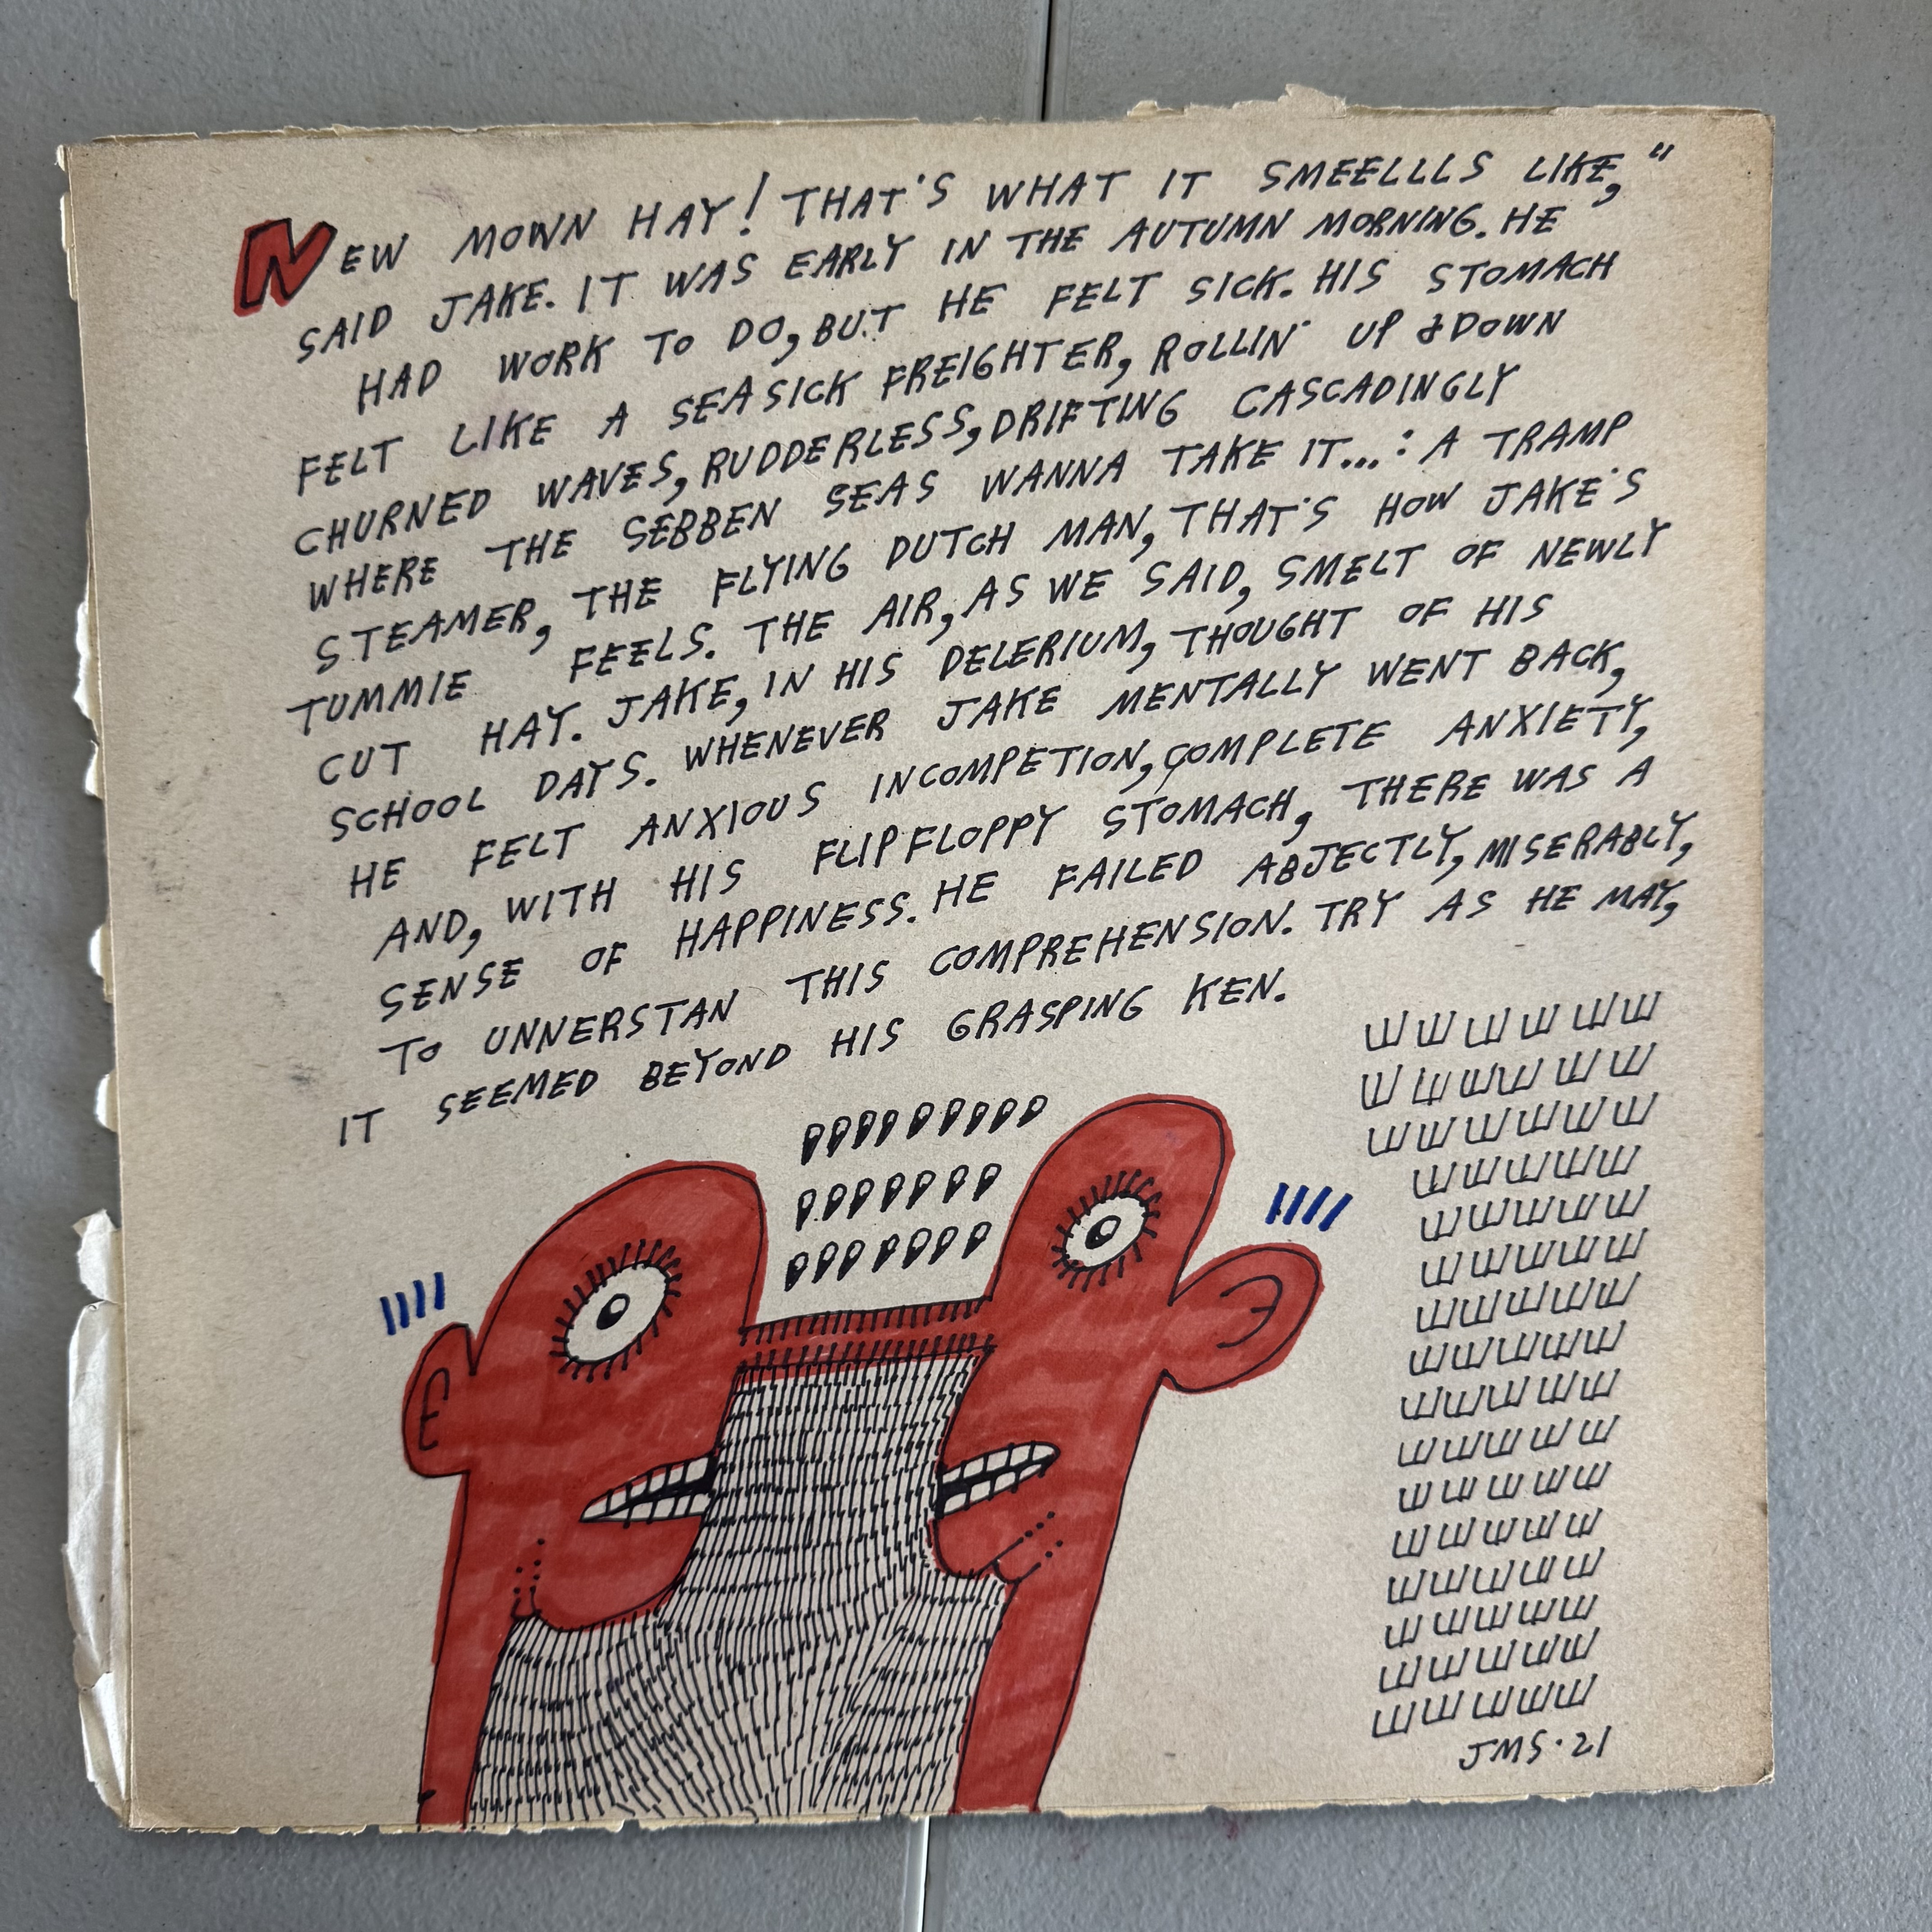 NEW MOWN HAY! THAT'S WHAT IT SMEELLLS LIKE,"
SAID JAKE. IT WAS EARLY IN THE AUTUMN MORNING. HE
HAD WORK TO DO, BUT HE FELT SICK. HIS STOMACH
FELT LIKE A SEASICK FREIGHTER, ROLLIN' UP & DOWN
CHURNED WAVES, RUDDERLESS, DRIFTING CASCADINGLY
WHERE THE SEBBEN SEAS WANNA TAKE IT...: A TRAMP
STEAMER, THE FLYING DUTCH MAN, THAT'S HOW JAKE'S
TUMMIE FEELS. THE AIR, AS WE SAID, SMELT OF NEWLY
CUT HAY. JAKE, IN HIS DELERIUM, THOUGHT OF HIS
SCHOOL DAYS. WHENEVER JAKE MENTALLY WENT BACK,
HE FELT ANXIOUS INCOMPETION, COMPLETE ANXIETY,
AND, WITH HIS FLIPFLOPPY STOMACH, THERE WAS A
SENSE OF HAPPINESS. HE FAILED ABJECTLY, MISERABLY,
TO UNNERSTAN THIS COMPREHENSION. TRY AS HE MAY,
IT SEEMED BEYOND HIS GRASPING KEN.
JMS·21